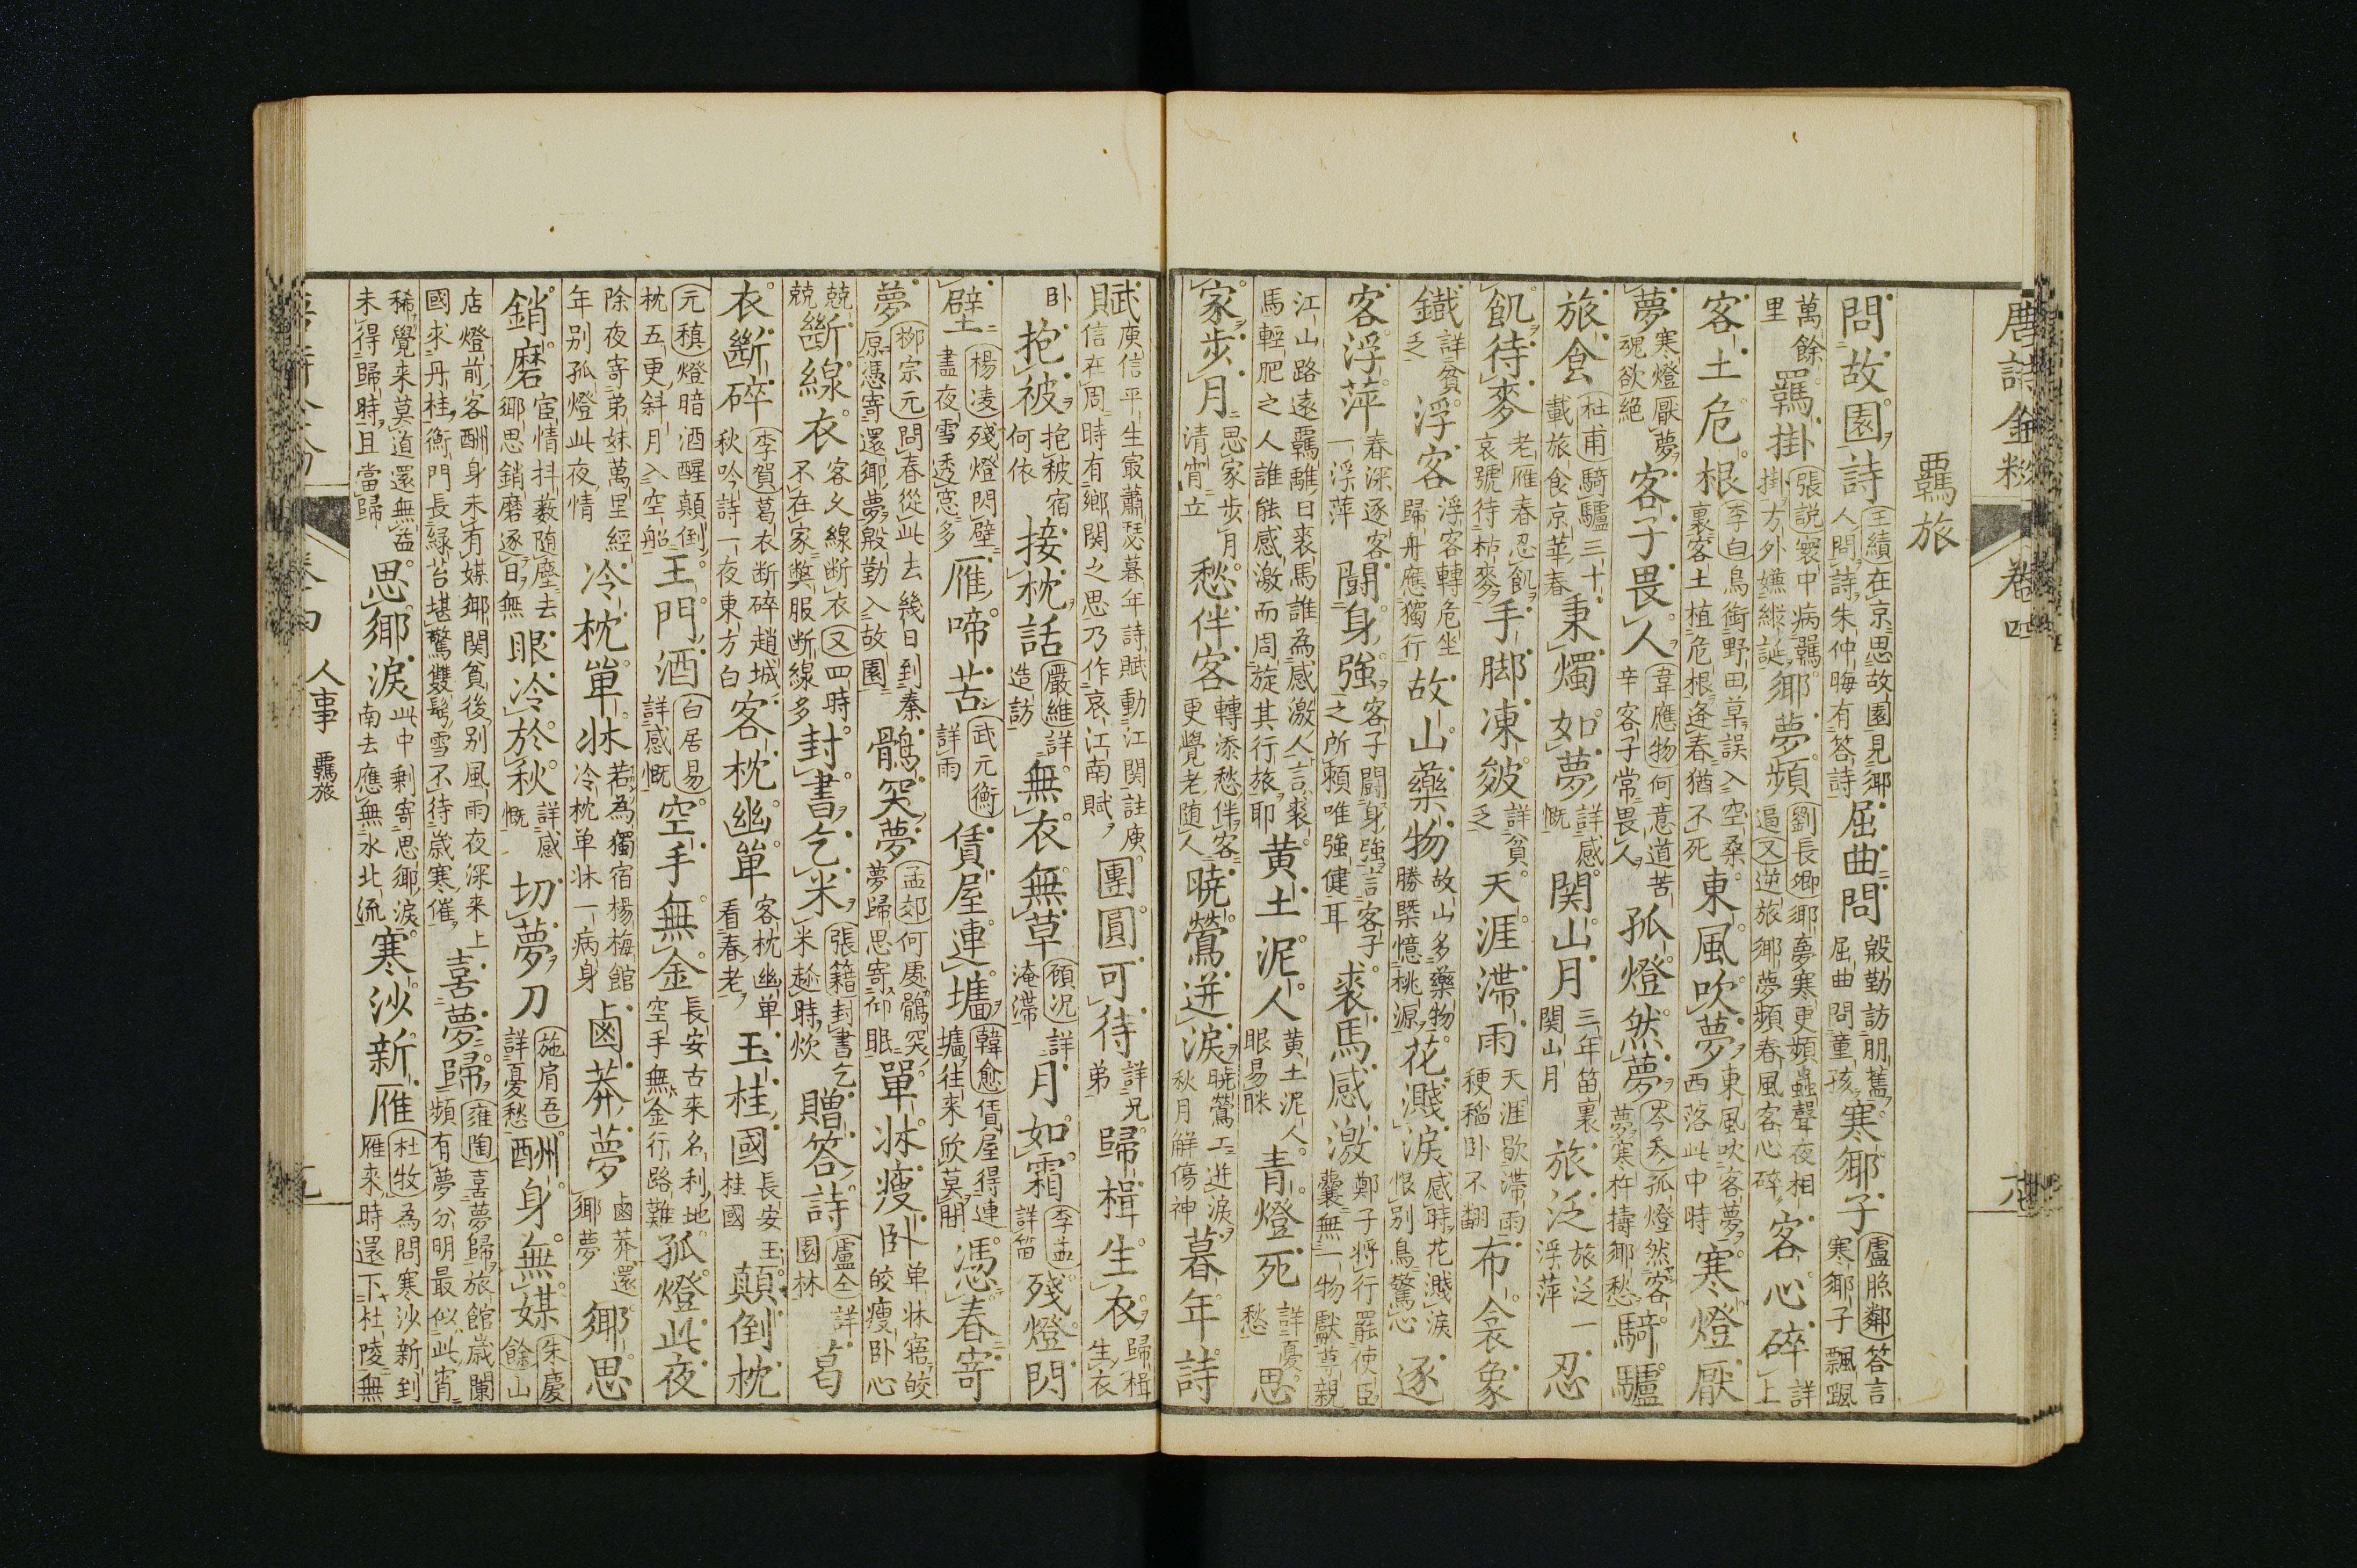 唐詩金粉 卷四
羈旅
問故園詩 王績 在京思故園見鄉人問詩 朱仲晦有答詩 屈曲問 殷勤訪朋舊 屈曲問童孩 寒鄉子 盧照鄰 答言寒鄉子 飄颻
萬餘里 羈掛 張説 寰中病羈掛 方外嬾縱誕 鄉夢頻 劉長卿 鄉夢寒更頻 蟲聲夜相逼 又 逆旅鄉夢頻 春風客心碎 客心碎 詳上
客土危根 李白 鳥銜野田草 誤入空桑裏 客土植危根 逢春猶不死 東風吹夢 東風吹客夢 西落此中時 寒燈厭
夢 寒燈厭夢魂欲絕 客子畏人 韋應物 何意道苦辛 客子常畏人 孤燈然夢 岑參 孤燈然客夢 寒杵擣鄉愁 騎驢
旅食 杜甫 騎驢三十載 旅食京華春 秉燭如夢 詳感慨 関山月 三年笛裏関山月 旅泛 旅泛一浮萍 忍
飢待麥 老雁春忍飢 哀號待枯麥 手脚凍皴 詳貧乏 天涯滞雨 天涯歇滞雨 稉稲卧不翻 布衾象
鐵 詳貧乏 浮客 浮客轉危坐 歸舟應獨行 故山藥物 故山多藥物 勝槩憶桃源 花濺淚 感時花濺淚 恨別鳥驚心 逐
客浮萍 春深逐客一浮萍 鬪身強 客子鬪身強 言客子之所頼唯強健耳 裘馬感激 鄭子将行罷使臣 囊無一物獻尊親
江山路遠羈離日 裘馬誰為感激人 言裘馬輕肥之人誰能感激而周旋其行旅耶 黄土泥人 黄土泥人眼易眯 青燈死 詳憂愁 思
家歩月 思家歩月清宵立 愁伴客 轉添愁伴客 更覺老随人 暁鶯迸淚 暁鶯工迸淚 秋月解傷神 暮年詩
賦 庾信平生最蕭瑟 暮年詩賦動江関 註庾信在周時有鄉関之思乃作哀江南賦 團圓可待 詳兄弟 歸楫生衣 歸楫生衣
卧 抱被 抱被宿何依 接枕話 嚴維 詳造訪 無衣無草 顧况 詳淹滞 月如霜 李益 詳笛 殘燈閃
壁 楊凌 殘燈閃壁 晝夜雪透窓多 雁啼苦 武元衡 詳雨 賃屋連壚 韓愈 賃屋得連壚 往來欣莫間 憑春寄
夢 柳宗元 問春從此去 幾日到秦原 憑寄還鄉夢 殷勤入故園 鶻突夢 孟郊 何處鶻突夢 歸思寄仰眠 單牀瘦卧 单牀寤皎皎 瘦卧心
兢兢 斷線衣 客久線断衣 又 四時不在家 獘服断線多 封書乞米 張籍 封書乞米趁時炊 贈答詩 盧仝 詳園林 葛
衣斷碎 李賀 葛衣断碎趙城秋 吟詩一夜東方白 客枕幽単 客枕幽单看春老 玉桂國 長安玉桂國 顛倒枕
元稹 燈暗酒醒顛倒枕 五更斜月入空船 王門酒 白居易 詳感慨 空手無金 長安古来名利地 空手無金行路難 孤燈此夜
除夜寄弟妹 萬里經年别 孤燈此夜情 冷枕単牀 若為獨宿楊梅館 冷枕単牀一病身 鹵莽夢 鹵莽還鄉夢 鄉思
銷磨 宦情抖薮随塵去 鄉思銷磨逐日無 眼冷於秋 詳感慨 切夢刀 施肩吾 詳憂愁 酬身無媒 朱慶餘 山
店燈前客 酬身未有媒 鄉関貧後别 風雨夜深来 上國求丹桂 衡門長緑苔 堪驚雙鬂雪 不待歳寒催 喜夢歸 雍陶 喜夢歸 旅館歳闌頻有夢 分明最似此宵
稀 覺来莫道還無益 未得歸時且當歸 思鄉淚 此中剰寄思鄉淚 南去應無水北流 寒沙新雁 杜牧 為問寒沙新到雁 来時還下杜陵無
人事 羈旅